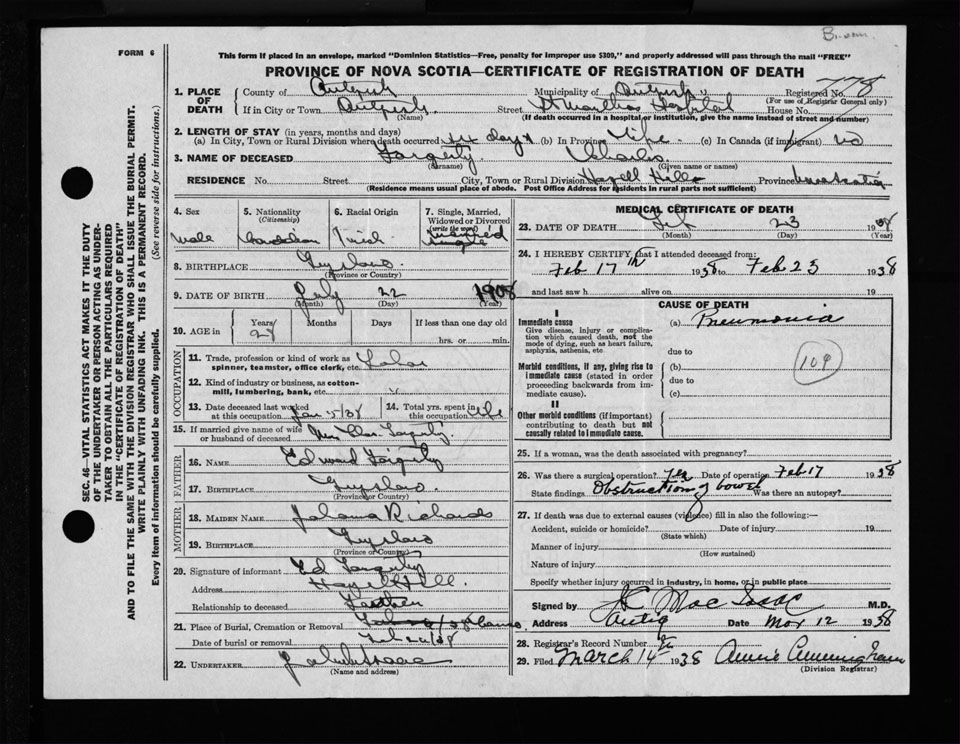 FORM 6
This form if placed in an envelope, marked "Dominion Statistics—Free, penalty for improper use $300," and properly addressed will pass through the mail "FREE"
PROVINCE OF NOVA SCOTIA—CERTIFICATE OF REGISTRATION OF DEATH
SEC. 46—VITAL STATISTICS ACT MAKES IT THE DUTY
OF THE UNDERTAKER OR PERSON ACTING AS UNDER-
TAKER TO OBTAIN ALL THE PARTICULARS REQUIRED
IN THE "CERTIFICATE OF REGISTRATION OF DEATH"
AND TO FILE THE SAME WITH THE DIVISION REGISTRAR WHO SHALL ISSUE THE BURIAL PERMIT.
WRITE PLAINLY WITH UNFADING INK. THIS IS A PERMANENT RECORD.
Every item of information should be carefully supplied. (See reverse side for instructions.)
1. PLACE OF DEATH
County of Municipality of Registered No. 778
(For use of Registrar General only)
If in City or Town Street St Marthas Hospital House No.
(Name) (If death occurred in a hospital or institution, give the name instead of street and number)
2. LENGTH OF STAY (in years, months and days)
(a) In City, Town or Rural Division where death occurred six days (b) In Province Life (c) In Canada (if immigrant) no
3. NAME OF DECEASED Fargerty Charles
(Surname) (Given name or names)
RESIDENCE No. Street City, Town or Rural Division Hazell Hill Province Nova Scotia
(Residence means usual place of abode. Post Office Address for residents in rural parts not sufficient)
4. Sex
Male
5. Nationality
(Citizenship)
Canadian
6. Racial Origin
Irish
7. Single, Married,
Widowed or Divorced
(write the word)
8. BIRTHPLACE Guysboro
(Province or Country)
9. DATE OF BIRTH July 22 1908
(Month) (Day) (Year)
10. AGE in Years Months Days If less than one day old
29 hrs. or min.
OCCUPATION
11. Trade, profession or kind of work as
spinner, teamster, office clerk, etc. Labor
12. Kind of industry or business, as cotton-
mill, lumbering, bank, etc.
13. Date deceased last worked
at this occupation Jan 5/38
14. Total yrs. spent in
this occupation
15. If married give name of wife
or husband of deceased
FATHER
16. NAME Edward Fargerty
17. BIRTHPLACE Guysboro
(Province or Country)
MOTHER
18. MAIDEN NAME Richards
19. BIRTHPLACE Guysboro
(Province or Country)
20. Signature of informant Ed Fargerty
Address Hazel Hill
Relationship to deceased Father
21. Place of Burial, Cremation or Removal
Date of burial or removal
22. UNDERTAKER
(Name and address)
MEDICAL CERTIFICATE OF DEATH
23. DATE OF DEATH Feb 23 1938
(Month) (Day) (Year)
24. I HEREBY CERTIFY that I attended deceased from:
Feb 17th 1938 to Feb 23 1938
and last saw h alive on 19
CAUSE OF DEATH
I
Immediate cause
Give disease, injury or complica-
tion which caused death, not the
mode of dying, such as heart failure,
asphyxia, asthenia, etc
(a) Pneumonia
due to
109
Morbid conditions, if any, giving rise to
immediate cause (stated in order
proceeding backwards from im-
mediate cause).
(b)
due to
(c)
II
Other morbid conditions (if important)
contributing to death but not
causally related to immediate cause.
25. If a woman, was the death associated with pregnancy?
26. Was there a surgical operation? Yes Date of operation Feb 17 1938
State findings Obstruction of bowel Was there an autopsy?
27. If death was due to external causes (violence) fill in also the following:—
Accident, suicide or homicide? Date of injury 19
(State which)
Manner of injury
(How sustained)
Nature of injury
Specify whether injury occurred in industry, in home, or in public place
Signed by Mac Isaac M.D.
Address Antig Date Mar 12 1938
28. Registrar's Record Number
29. Filed March 14 1938 Annie Cunningham
(Division Registrar)